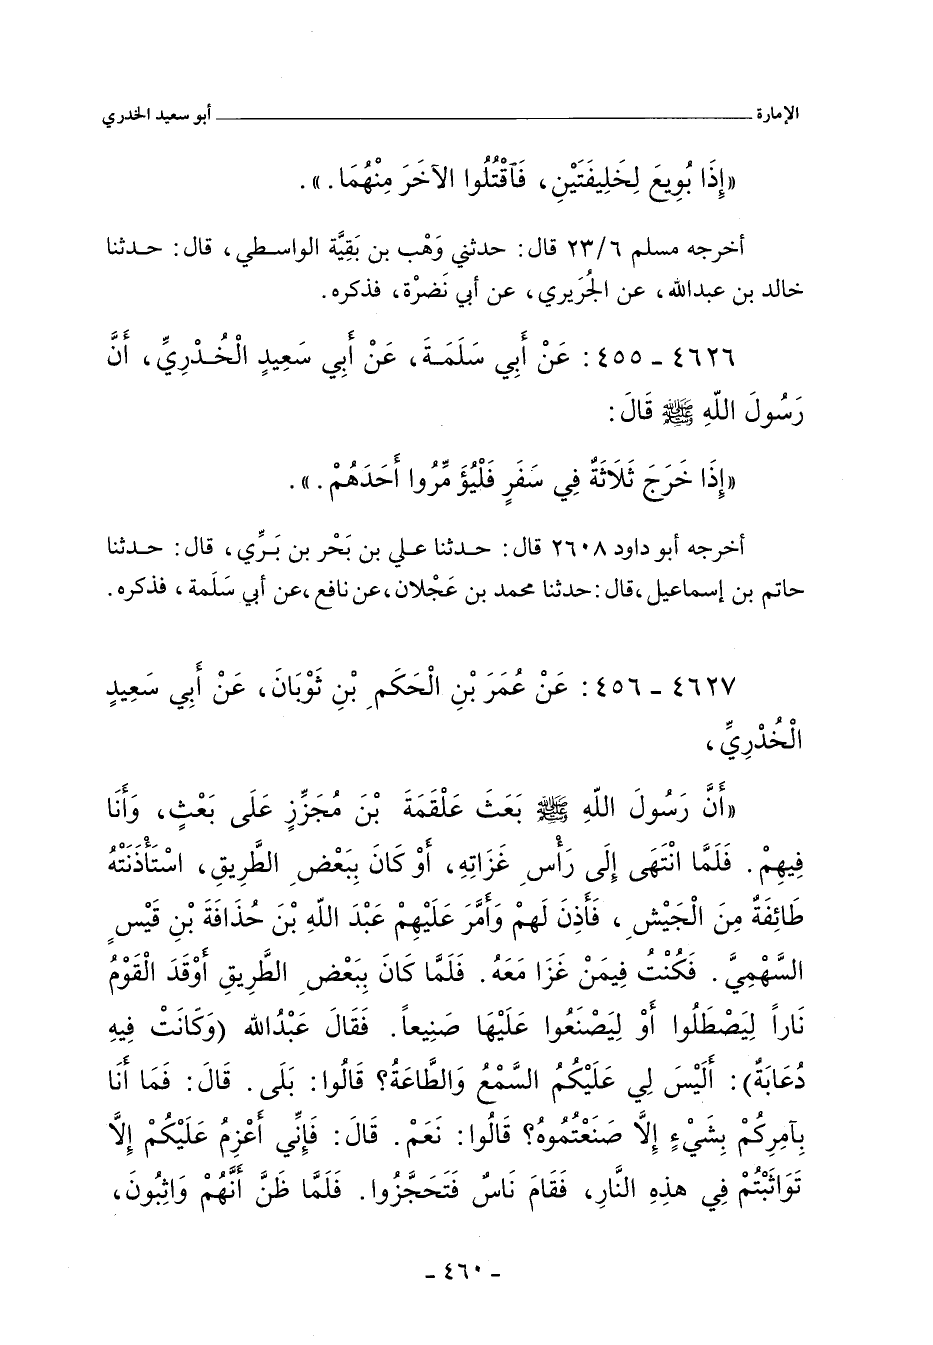 الإمارة ـــــــــــــــــــــ أبو سعيد الخدري
«إِذَا بُويِعَ لِخَلِيفَتَيْنِ، فَٱقْتُلُوا الآخَرَ مِنْهُمَا.».
أخرجه مسلم ٢٣/٦ قال: حدثني وَهْب بن بَقِيَّة الواسطي، قال: حدثنا
خالد بن عبدالله، عن الجُرَيري، عن أبي نَضرْة، فذكره.
٤٦٢٦ - ٤٥٥: عَنْ أَبِي سَلَمَةَ، عَنْ أَبِي سَعِيدٍ الْخُدْرِيِّ، أَنَّ
رَسُولَ اللّهِ ﷺ قَالَ:
«إِذَا خَرَجَ ثَلَاثَةٌ فِي سَفَرٍ فَلْيُؤَمِّرُوا أَحَدَهُمْ.».
أخرجه أبو داود ٢٦٠٨ قال: حدثنا علي بن بَحْر بن بَرِّي، قال: حدثنا
حاتم بن إسماعيل، قال: حدثنا محمد بن عَجْلان، عن نافع، عن أبي سَلَمة، فذكره.
٤٦٢٧ - ٤٥٦: عَنْ عُمَرَ بْنِ الْحَكَمِ بْنِ ثَوْبَانَ، عَنْ أَبِي سَعِيدٍ
الْخُدْرِيِّ،
«أَنَّ رَسُولَ اللّهِ ﷺ بَعَثَ عَلْقَمَةَ بْنَ مُجَزِّزٍ عَلَى بَعْثٍ، وَأَنَا
فِيهِمْ. فَلَمَّا انْتَهَى إِلَى رَأْسِ غَزَاتِهِ، أَوْ كَانَ بِبَعْضِ الطَّرِيقِ، اسْتَأْذَنَتْهُ
طَائِفَةٌ مِنَ الْجَيْشِ، فَأَذِنَ لَهُمْ وَأَمَّرَ عَلَيْهِمْ عَبْدَ اللّهِ بْنَ حُذَافَةَ بْنِ قَيْسٍ
السَّهْمِيَّ. فَكُنْتُ فِيمَنْ غَزَا مَعَهُ. فَلَمَّا كَانَ بِبَعْضِ الطَّرِيقِ أَوْقَدَ الْقَوْمُ
نَاراً لِيَصْطَلُوا أَوْ لِيَصْنَعُوا عَلَيْهَا صَنِيعاً. فَقَالَ عَبْدُالله (وَكَانَتْ فِيهِ
دُعَابَةٌ): أَلَيْسَ لِي عَلَيْكُمُ السَّمْعُ وَالطَّاعَةُ؟ قَالُوا: بَلَى. قَالَ: فَمَا أَنَا
بِآمِرِكُمْ بِشَيْءٍ إِلَّا صَنَعْتُمُوهُ؟ قَالُوا: نَعَمْ. قَالَ: فَإِنِّي أَعْزِمُ عَلَيْكُمْ إِلَّا
تَوَاثَبْتُمْ فِي هذِهِ النَّارِ، فَقَامَ نَاسٌ فَتَحَجَّزُوا. فَلَمَّا ظَنَّ أَنَّهُمْ وَاثِبُونَ،
- ٤٦٠ -